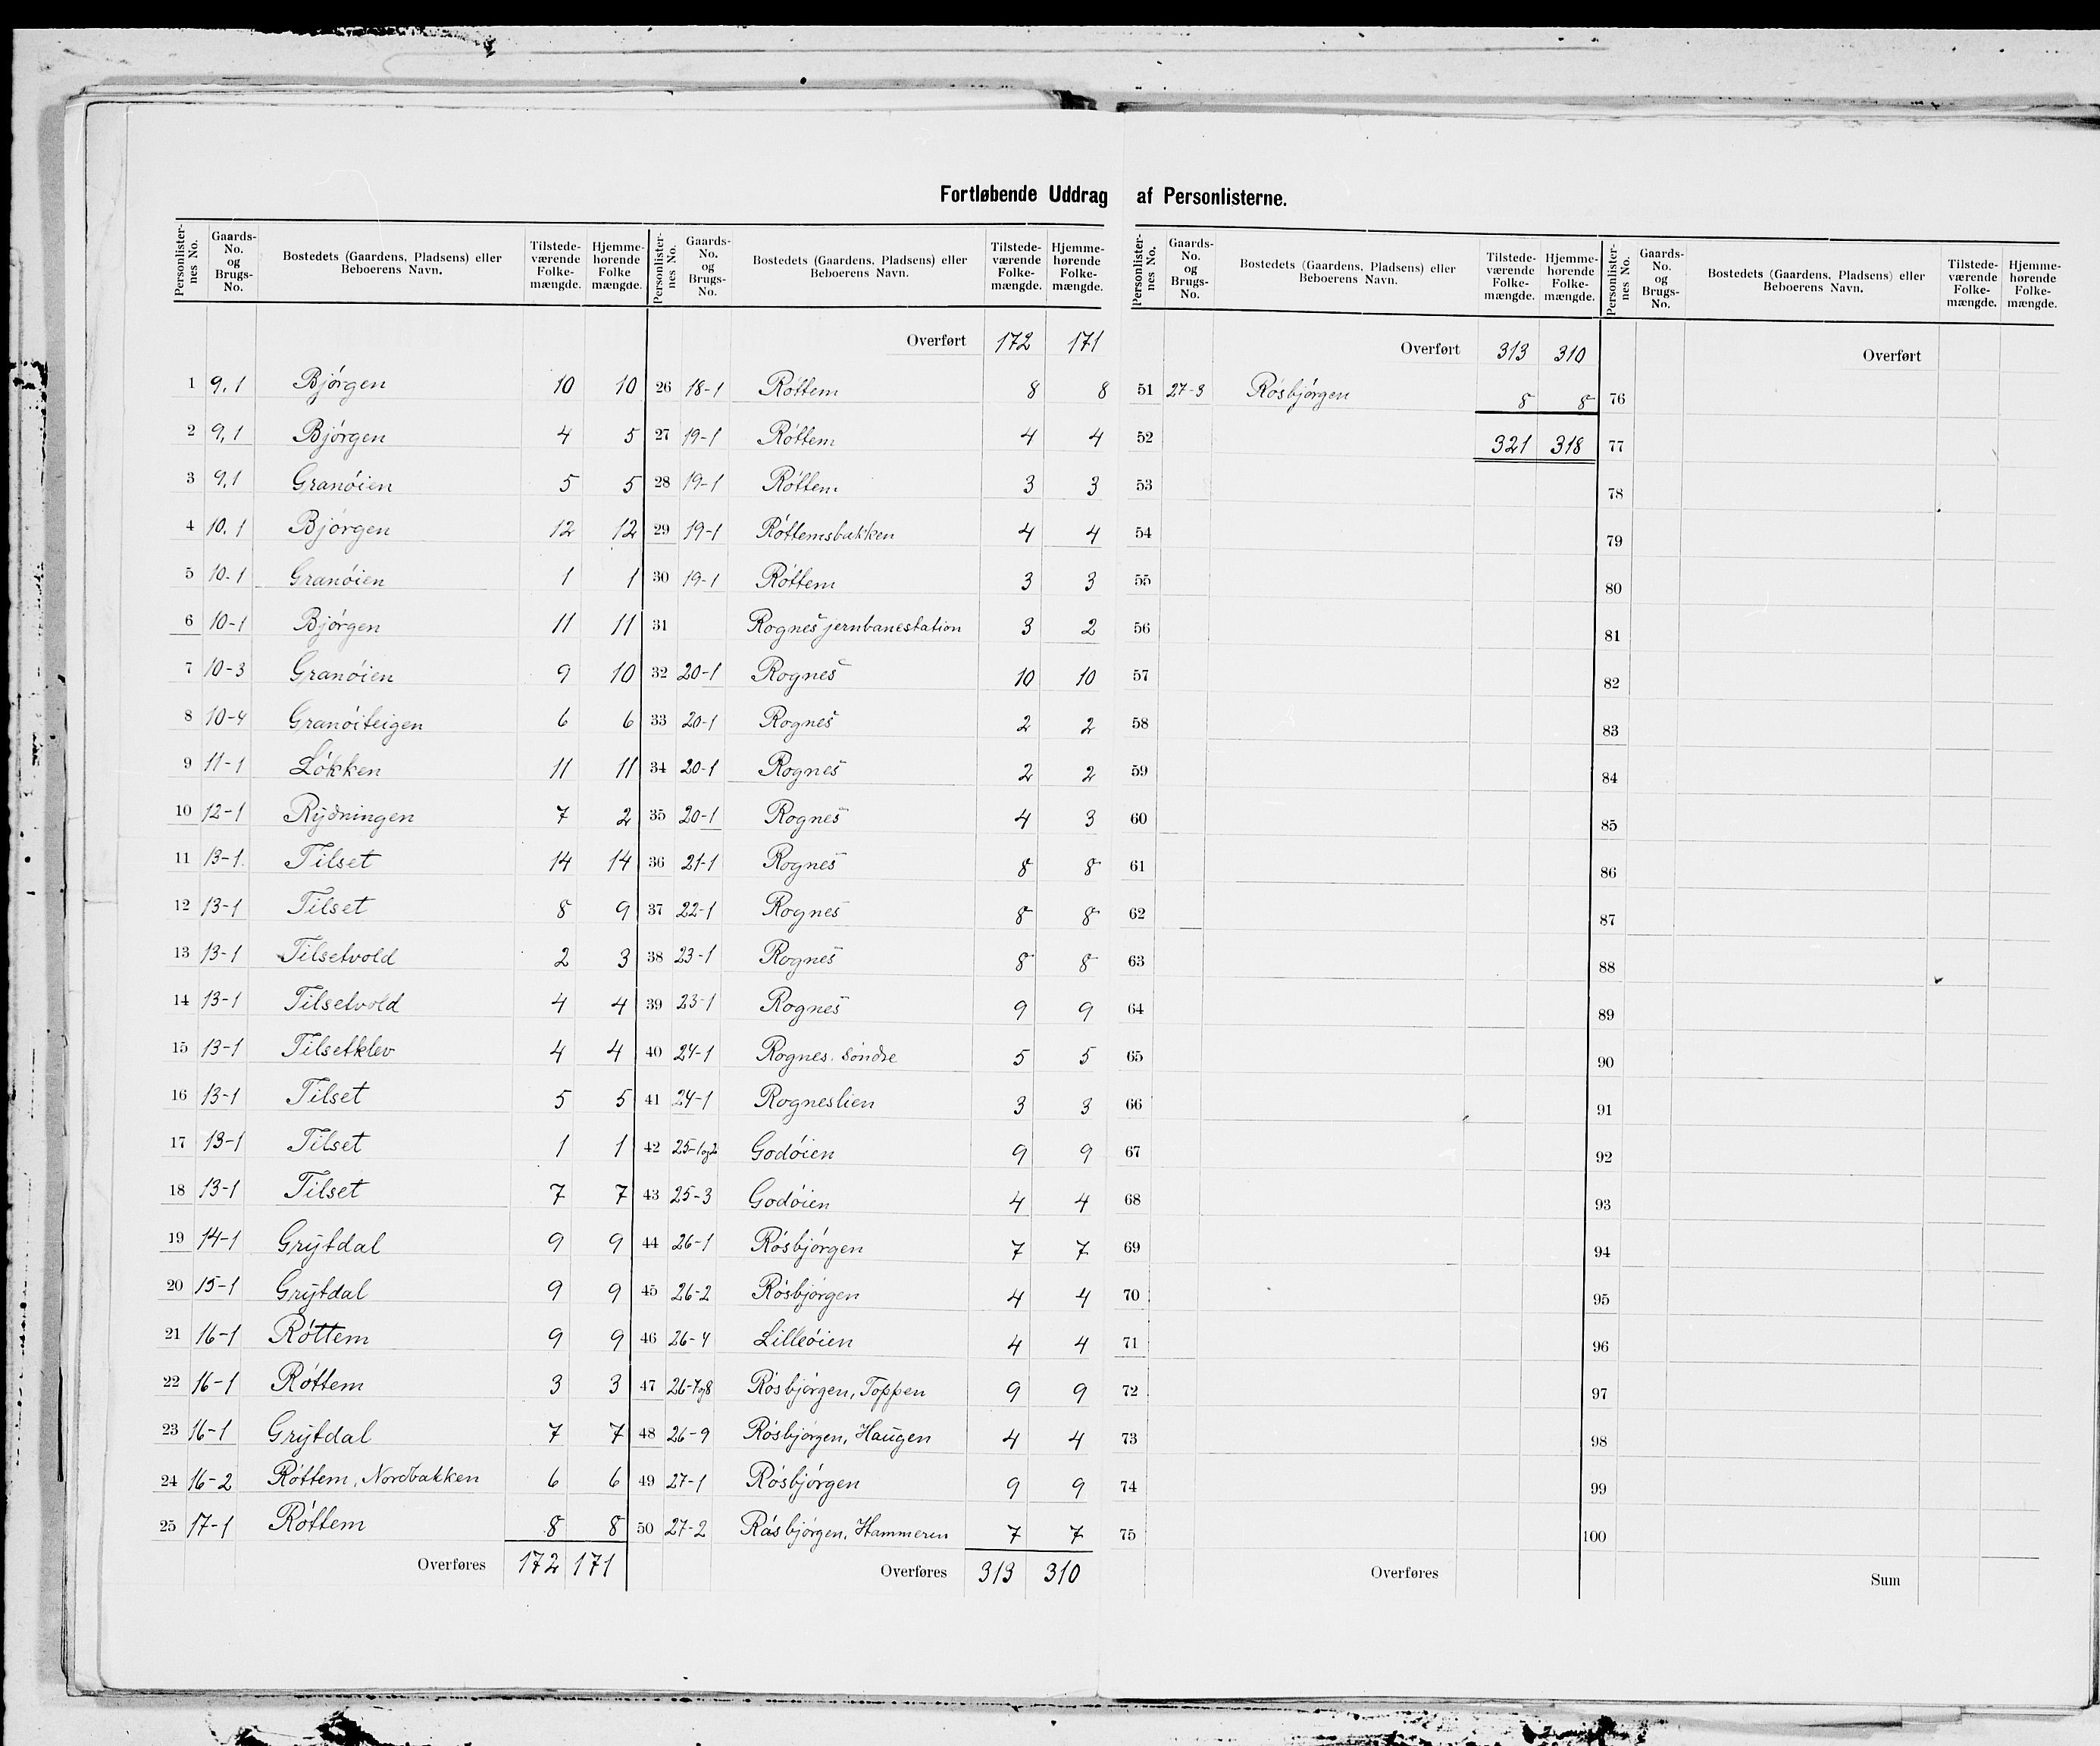 Fortløbende Uddrag af Personlisterne.
Personlister-nes No. Gaards-No. og Brugs-No. Bostedets (Gaardens, Pladsens) eller Beboerens Navn. Tilstede-værende Folke-mængde. Hjemme-hørende Folke mængde.
1 9,1 Bjørgen 10 10
2 9,1 Bjørgen 4 5
3 9,1 Granöien 5 5
4 10.1 Bjørgen 12 12
5 10-1 Granöien 1 1
6 10-1 Bjørgen 11 11
7 10-3 Granöien 9 10
8 10-4 Granöiteigen 6 6
9 11-1 Løkken 11 11
10 12-1 Rydningen 7 2
11 13-1. Tilset 14 14
12 13-1 Tilset 8 9
13 13-1 Tilsetvold 2 3
14 13-1 Tilsetvold 4 4
15 13-1 Tilsetklev 4 4
16 13-1 Tilset 5 5
17 13-1 Tilset 1 1
18 13-1 Tilset 7 7
19 14-1 Grytdal 9 9
20 15-1 Grytdal 9 9
21 16-1 Róttem 9 9
22 16-1 Róttem 3 3
23 16-1 Grytdal 7 7
24 16-2 Róttem, Nordbakken 6 6
25 17-1 Róttem 8 8
Overføres 172 171
Personlister-nes No. Gaards-No. og Brugs-No. Bostedets (Gaardens, Pladsens) eller Beboerens Navn. Tilstede-værende Folke-mængde. Hjemme-hørende Folke-mængde.
Overført 172 171
26 18-1 Róttem 8 8
27 19-1 Róttem 4 4
28 19-1 Róttem 3 3
29 19-1 Róttemsbakken 4 4
30 19-1 Róttem 3 3
31 Rognes jernbanestation 3 2
32 20-1 Rognes 10 10
33 20-1 Rognes 2 2
34 20-1 Rognes 2 2
35 20-1 Rognes 4 3
36 21-1 Rognes 8 8
37 22-1 Rognes 8 8
38 23-1 Rognes 8 8
39 23-1 Rognes 9 9
40 24-1 Rognes. søndre 5 5
41 24-1 Rogneslien 3 3
42 25-1og2 Godöien 9 9
43 25-3 Godöien 4 4
44 26-1 Rósbjórgen 7 7
45 26-2 Rósbjórgen 4 4
46 26-4 Lilleóien 4 4
47 26-7og8 Rósbjórgen, Toppen 9 9
48 26-9 Rósbjórgen, Haugen 4 4
49 27-1 Rósbjórgen 9 9
50 27-2 Rósbjórgen, Hammeren 7 7
Overføres 313 310
Personlister-nes No. Gaards-No. og Brugs-No. Bostedets (Gaardens, Pladsens) eller Beboerens Navn. Tilstede-værende Folke-mængde. Hjemme-hørende Folke-mængde.
Overført 313 310
51 27-3 Rósbjórgen 8 8
52 321 318
53
54
55
56
57
58
59
60
61
62
63
64
65
66
67
68
69
70
71
72
73
74
75
Overføres
Personlister-nes No. Gaards-No. og Brugs-No. Bostedets (Gaardens, Pladsens) eller Beboerens Navn. Tilstede-værende Folke-mængde. Hjemme-hørende Folke-mængde.
Overført
76
77
78
79
80
81
82
83
84
85
86
87
88
89
90
91
92
93
94
95
96
97
98
99
100
Sum